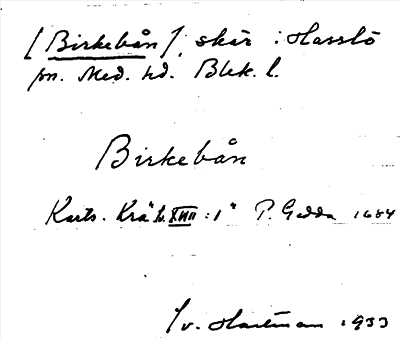 [Birkebån], skär i Hasslö
sn. Med. hd. Blek. l.
Birkebån
Karts. Krå h. XVIII:1 P. Gedda 1684
Iv. Hartman 1933